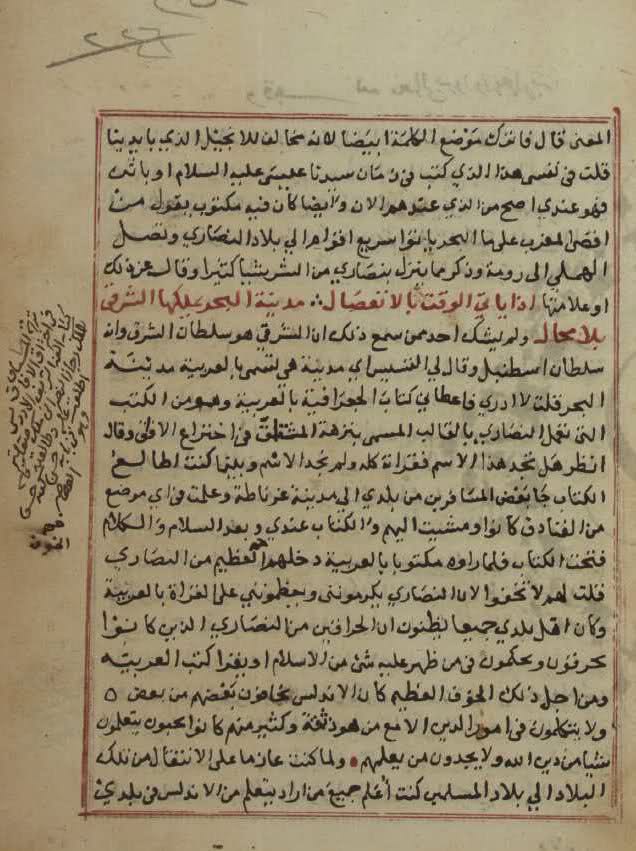 المعنى قال فاترك موضع الكلمة ابيضا لانه مخالف للانجيل الذي بايدينا
قلت في نفسى هذا الذي كتب في زمان سيدنا عيسى عليه السلام او باثره
فهو عندي اصح من الذي عندهم الان وايضا كان فيه مكتوب يقول من
اقصى المغرب على ما البحر يانوا سريع اقواما الي بلاد النصارى وتصل
الى رومة وذكر ما ينزل بنصارى من الشر شيا كثيرا وقال عن ذلك
وعلامتها اذا ياتي الوقت بالانفصال ∴ مدينة البحر يملكها الشرقي
بلا محال ولم يشك احد ممن سمع ذلك ان الشرقي هو سلطان الشرق وانه
سلطان اسطنبل وقال لي القسيس اي مدينة هي تسمى بالعربية مدينة
البحر قلت لا ادري فاعطاني كتاب الجغرافية بالعربية وهو من الكتب
التى تعمل النصارى بالقالب المسمى بنزهة المشتاق في اختراع الافاق وقال
انظر هل تجد هذا الاسم فقراته كله ولم نجد الاسم وبينما كنت اطالع
الكتاب جا بعض المسافرين من بلدي الي مدينة غرناطة وعلمت في اي موضع
من الفنادق كانوا ومشيت اليهم والكتاب عندي وبعد السلام والكلام
فتحت الكتاب فلما راوه مكتوبا بالعربية دخلهم الخوف العظيم من النصارى
قلت لهم لا تخفوا لان النصارى يكرمونني ويعظمونني على القراة بالعربية
وكان اهل بلدي جميعا يظنون ان الحراقين من النصارى الذين كانوا
يحرقون ويحكمون في من ظهر عليه شي من الاسلام او يقرا كتب العربية
ومن اجل ذلك الخوف العظيم كان الاندلس يخافون بعضهم من بعض
ولا يتكلمون في امور الدين الا مع من هو ذو ثقة وكثير منهم كانوا يحبون يتعلمون
شيا من دين الله ولا يجدون من يعلمهم ولما كنت عازما على الانتقال من تلك
البلاد الي بلاد المسلمين كنت اعلم جميع من اراد يتعلم من الاندلس في بلدي